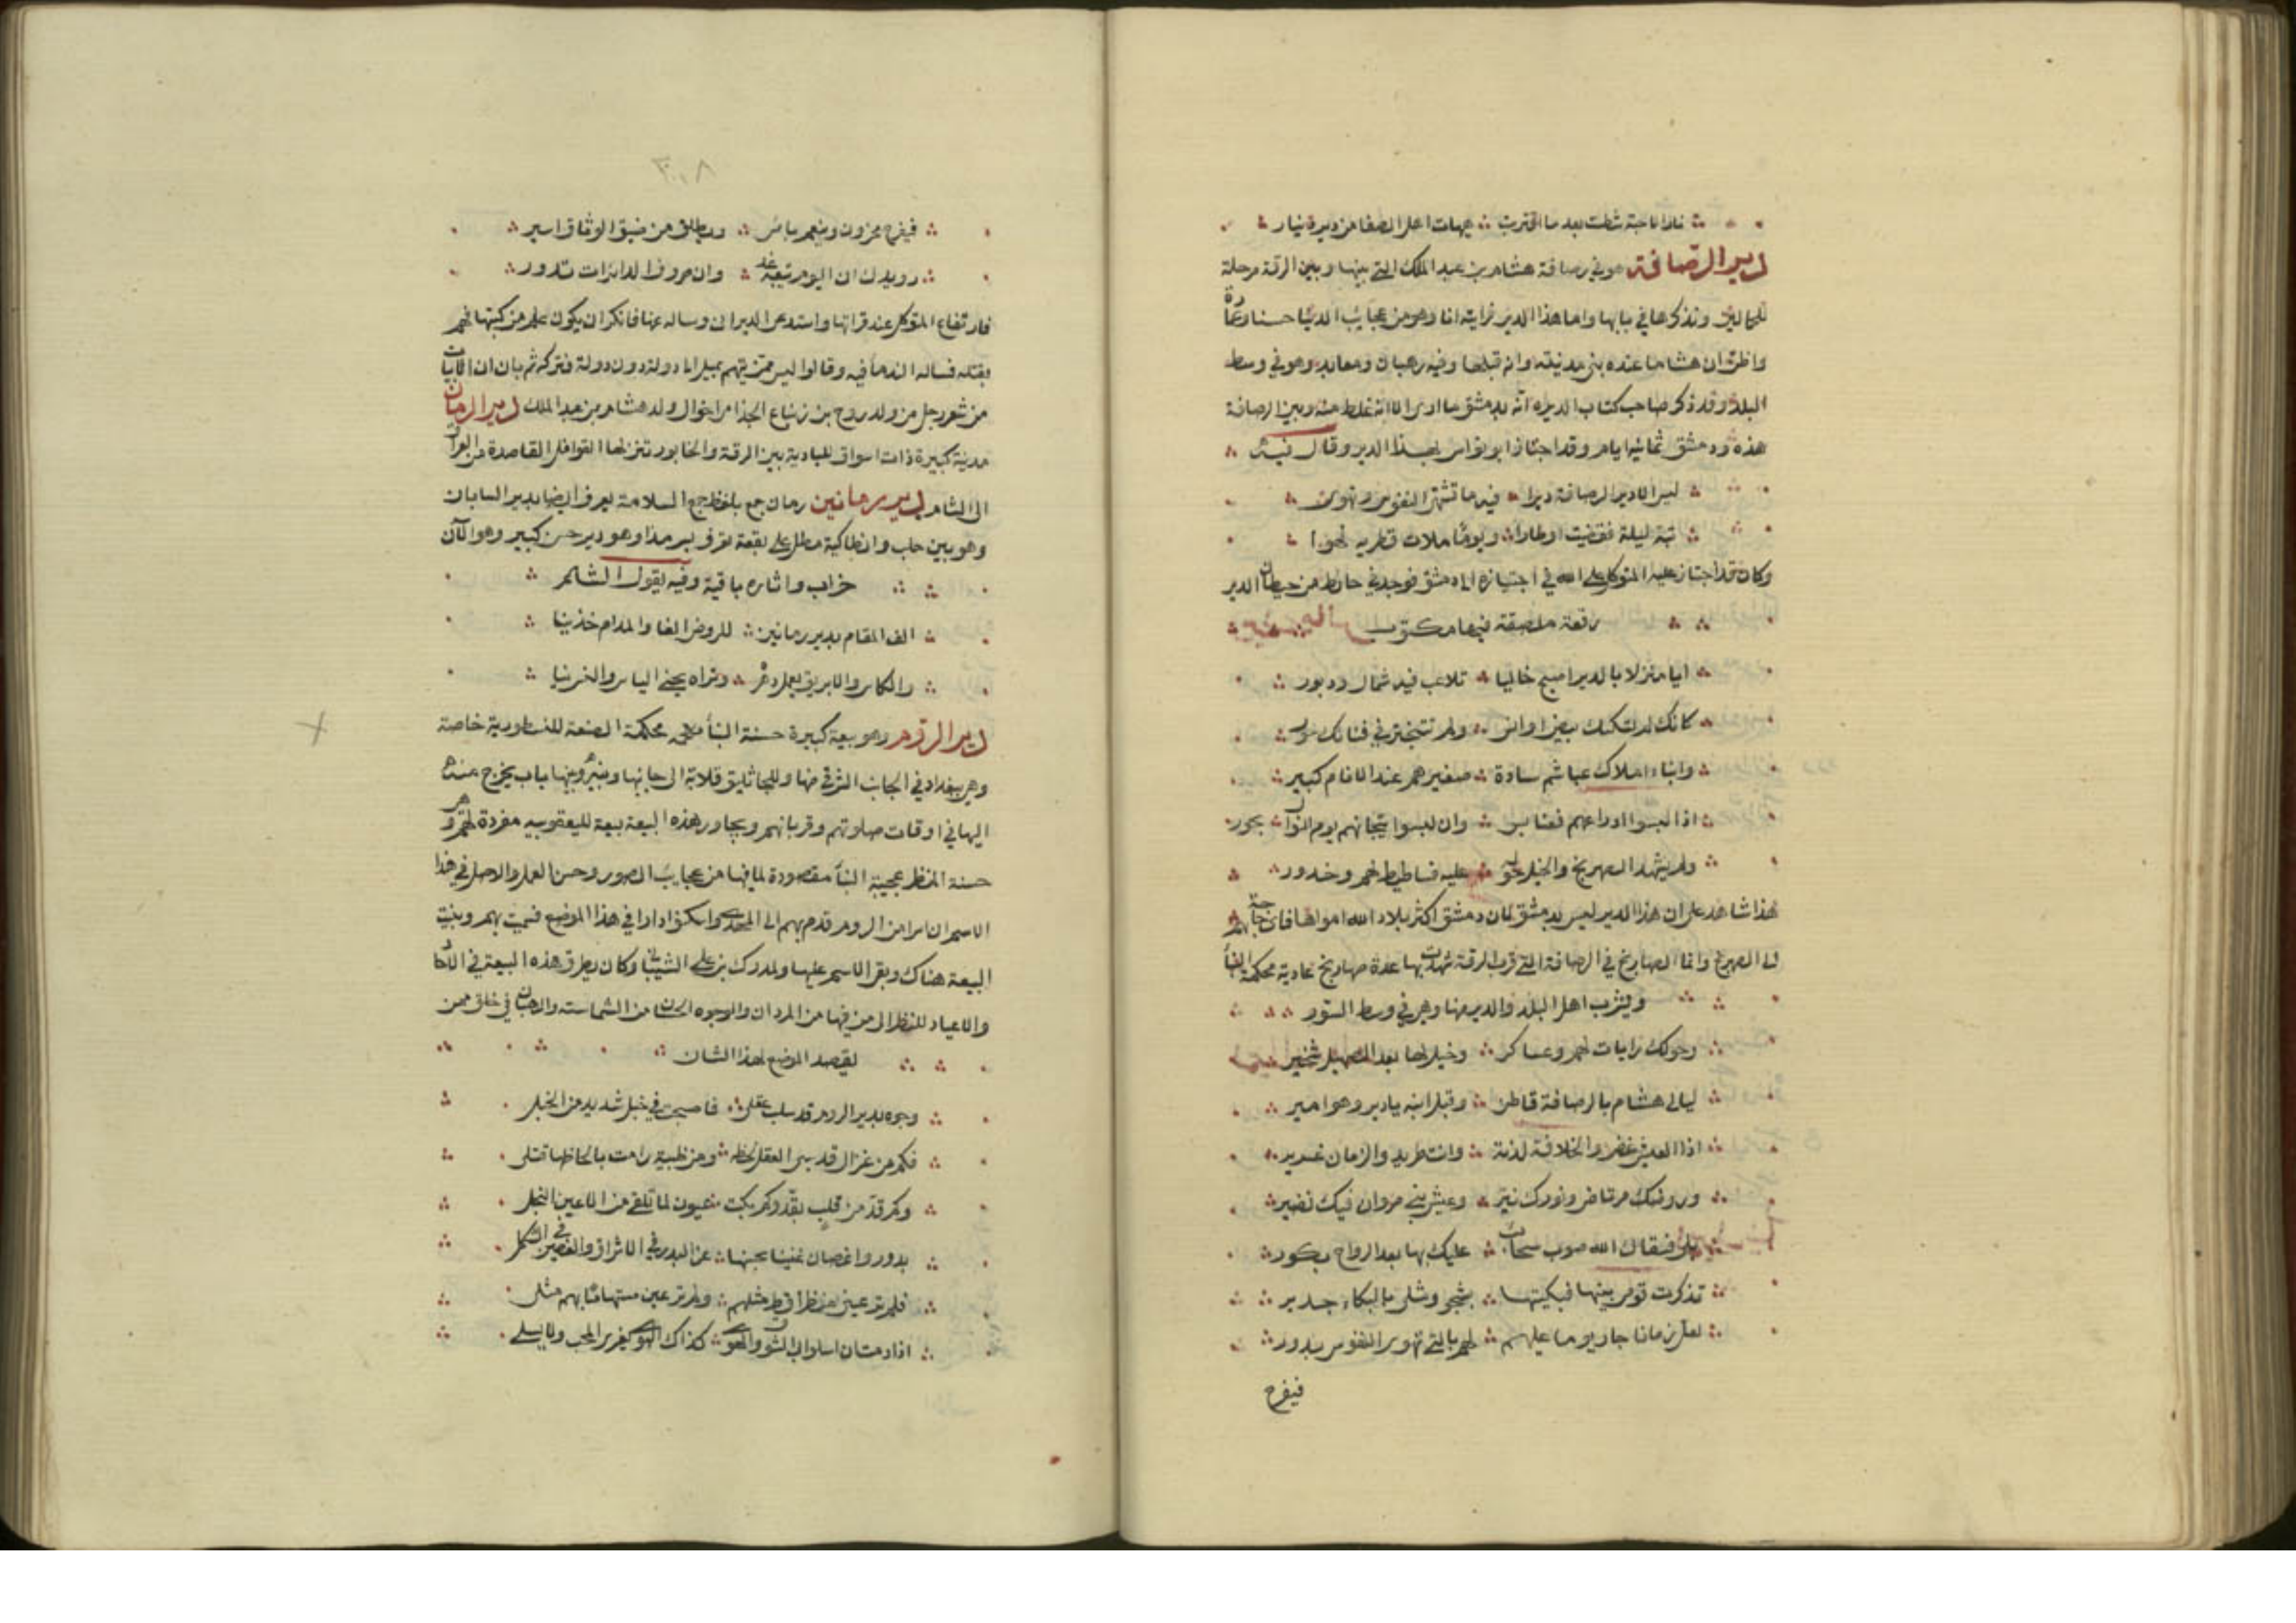 دير الرصافة هو في رصافة هشام بن عبد الملك التي بينها وبين الرقة مرحلة
للحمالين ونذكرها في بابها واما هذا الدير فرايته انا وهو من عجايب الدنيا حسنا وعمارة
واظن ان هشاما عنده بنى مدينته وانه قبلها وفيه رهبان ومعابد وهو في وسط
البلد وقد ذكر صاحب كتاب الديرة انه بدمشق ما ادرى الا انه غلط منه وبين الرصافة
هذه ودمشق ثمانية ايام وقد اجتاز ابو نواس بهذا الدير وقال فيه
ليس الا دير الرصافة ديرا فيه ما تشتهي النفوس وتهوى
بته ليلة فقضيت اوطارا ويوما ملات قطريه لهوا
وكان قد اجتاز عليه المتوكل على الله في اجتيازه الى دمشق فوجد في حائط من حيطان الدير
رقعة ملصقة فيها مكتوب
ايا منزلا بالدير اصبح خاليا تلاعب فيه شمال ودبور
كانك لم تسكنك بيض اوانس ولم تتبختر في فنائك حور
وابناء املاك عباشم سادة صغيرهم عند الانام كبير
اذا لبسوا ادراعهم فعنابس وان لبسوا تيجانهم فبدور
ولم يشهد الصهريج والخيل حوله عليه فساطيط لهم وخدور
هذا شاهد على ان هذا الدير ليس بدمشق لان دمشق اكثر بلاد الله امواها فاى حاجة بهم
الى الصهريج وانما الصهاريج في الرصافة التي قرب الرقة شهدت بها عدة صهاريج عادية محكمة البنا
ويشرب اهل البلد والدير منها وهي في وسط السور
وحولك رايات لهم وعساكر وخيل لها بعد الصهيل شخير
ليالى هشام بالرصافة قاطن وفيك ابنه يا دير وهو امير
اذا العيش غض والخلافة لدنة وانت طرير والزمان غرير
وروضك مرتاض ونورك نير وعيش بني مروان فيك نضير
بلى فسقاك الله صوب سحائب عليك بها بعد الرواح بكور
تذكرت قومي بينها فبكيتها بشجو ومثلى بالبكاء جدير
لعل زمانا جار يوما عليهم لهم بالتي تهوى النفوس يدور
فيفرح
٣٠٨
فيفرح محزون وينعم بائس ويطلق من ضيق الوثاق اسير
رويدك ان اليوم يتبعه غد وان صروف الدائرات تدور
فارتاع المتوكل عند قراتها واستدعى الديراني وساله عنها فانكر ان يكون علم من كتبها فهم
بقتله فساله الندما فيه وقالوا ليس ممن يتهم بميل الى دولة دون دولة فتركه ثم بان ان الابيات
من شعر رجل من ولد روح بن زنباع الجذامي اخوال ولد هشام بن عبد الملك دير الرمان
مدينة كبيرة ذات اسواق للبادية بين الرقة والخابور تنزلها القوافل القاصدة من العراق
الى الشام دير رمانين رمان جمع بلفظ جمع السلامة يعرف ايضا بدير السابان
وهو بين حلب وانطاكية مطل على بقعة تعرف بسرمدا وهو دير حسن كبير وهو الآن
خراب واثاره باقية وفيه يقول الشاعر
الف المقام بدير رمانين للروض الفا والمدام خدينا
والكاس والابريق يعمل دهره وتراه يجني الياس والنسرينا
دير الروم وهو بيعة كبيرة حسنة البنا محكمة الصنعة للنسطورية خاصة
وهي ببغداد في الجانب الشرقي منها وللجاثليق قلاية الى جانبها وبينه وبينها باب يخرج منه
اليها في اوقات صلوتهم وقربانهم وبجاور هذه البيعة بيعة لليعقوبيه مفردة لهم وهي
حسنة المنظر عجيبة البنا مقصودة لما فيها من عجايب الصور وحسن العمل والاصل في هذا
الاسم ان اسرا من الروم قدم بهم الى المهدي واسكنوا دارا في هذا الموضع فسميت بهم وبنيت
البيعة هناك وبقي الاسم عليها ولمدرك بن علي الشيباني وكان يطرق هذه البيعة في الآحاد
والاعياد للنظر الى من فيها من المردان والوجوه الحسان من الشماسته والرهبان في خلق ممن
يقصد الموضع لهذا الشان
وجوه بدير الروم قد سلبت عقلى فاصبحت في خبل شديد من الخبل
فكم من غزال قد سبى العقل لحظه ومن ظبية رامت بالحاظها قتلى
وكم قد من قلب بقد وكم بكت عيون لما تلقى من الاعين النجل
بدور واغصان غنينا بحسنها عن البدر في الاشراق والغصن في الشكل
فلم تر عيني منظرا قط مثلهم ولم تر عين مستهاما بهم مثلى
اذا رمت ان اسلو ابى الشوق والهوى كذاك الهوى يغري المحب ولا يسلي